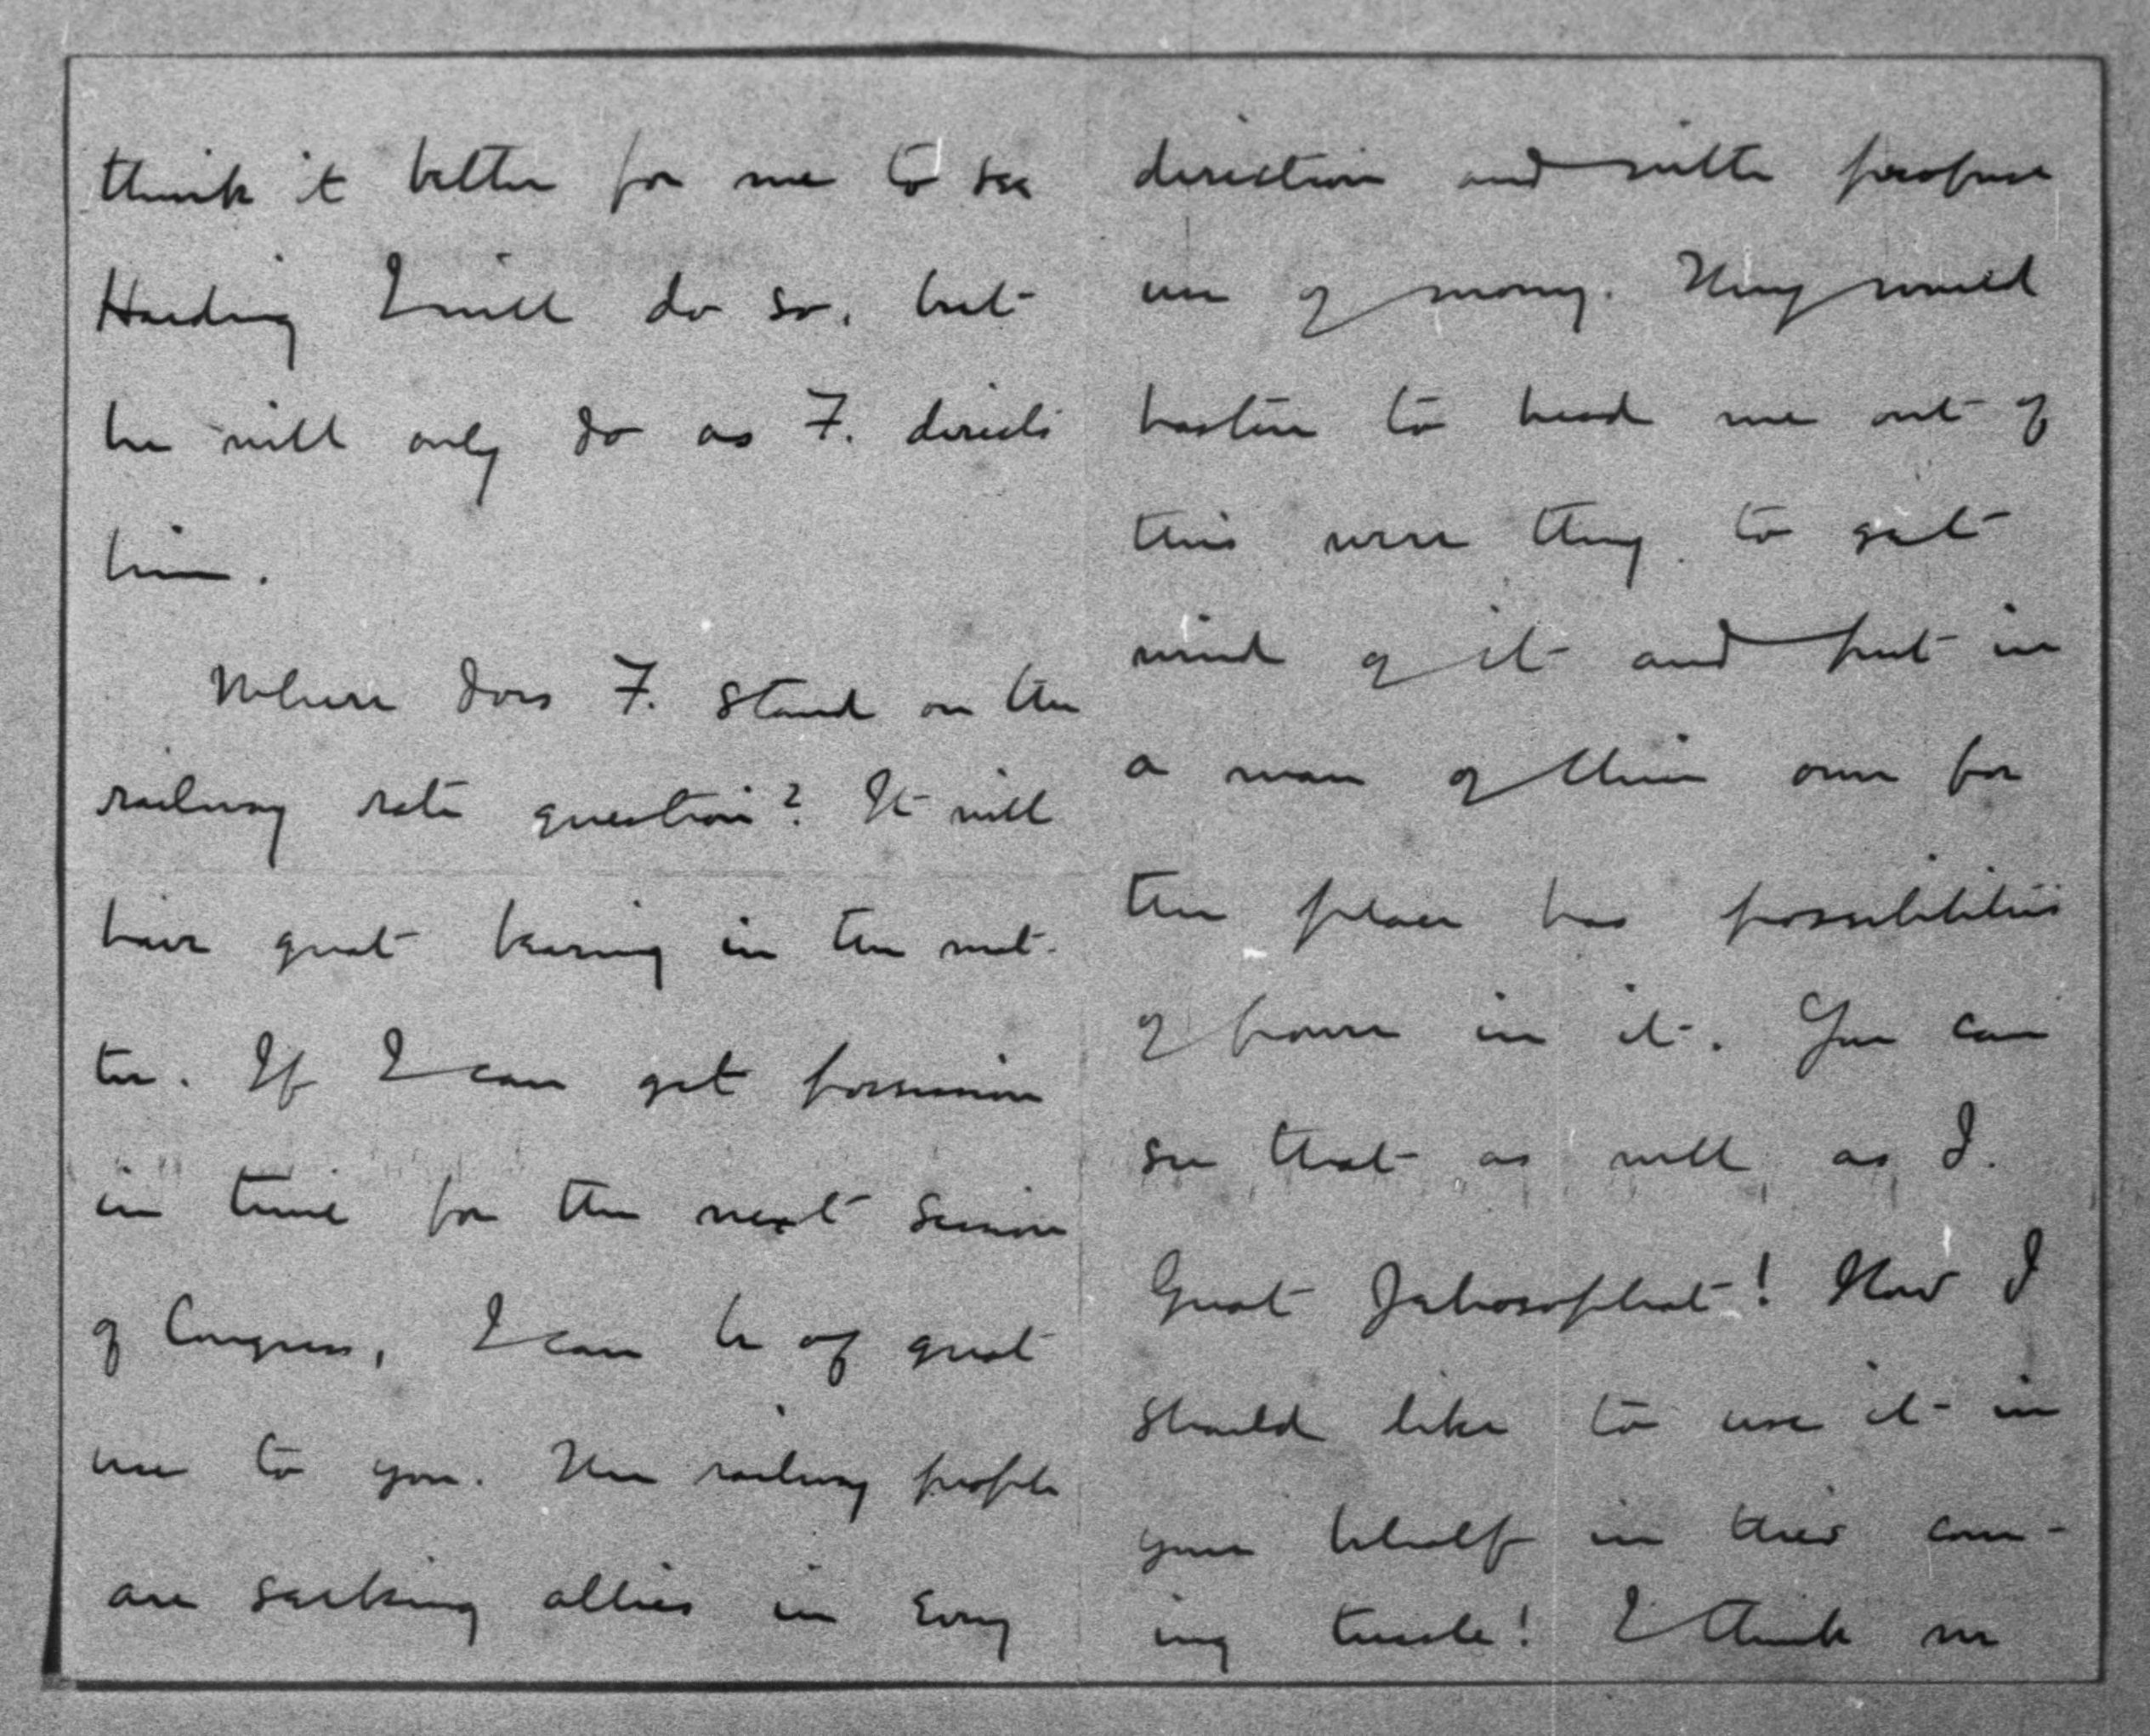 think it better for me to see
Harding I will do so, but
he will only do as F. directs
him.
Where does F. stand on the
railway rate question? It will
have great bearing in the mat-
ter. If I can get possession
in time for the next session
of Congress, I can be of great
use to you. The railway people
are seeking allies in every
direction and with profuse
use of money. They would
hasten to head me out of
this were they to get
wind of it and put in
a man of their own for
the place has possibilities
of power in it. You can
see that as well as I.
Great Jehosophat! How I
should like to use it in
your behalf in this com-
ing tussle! I think we